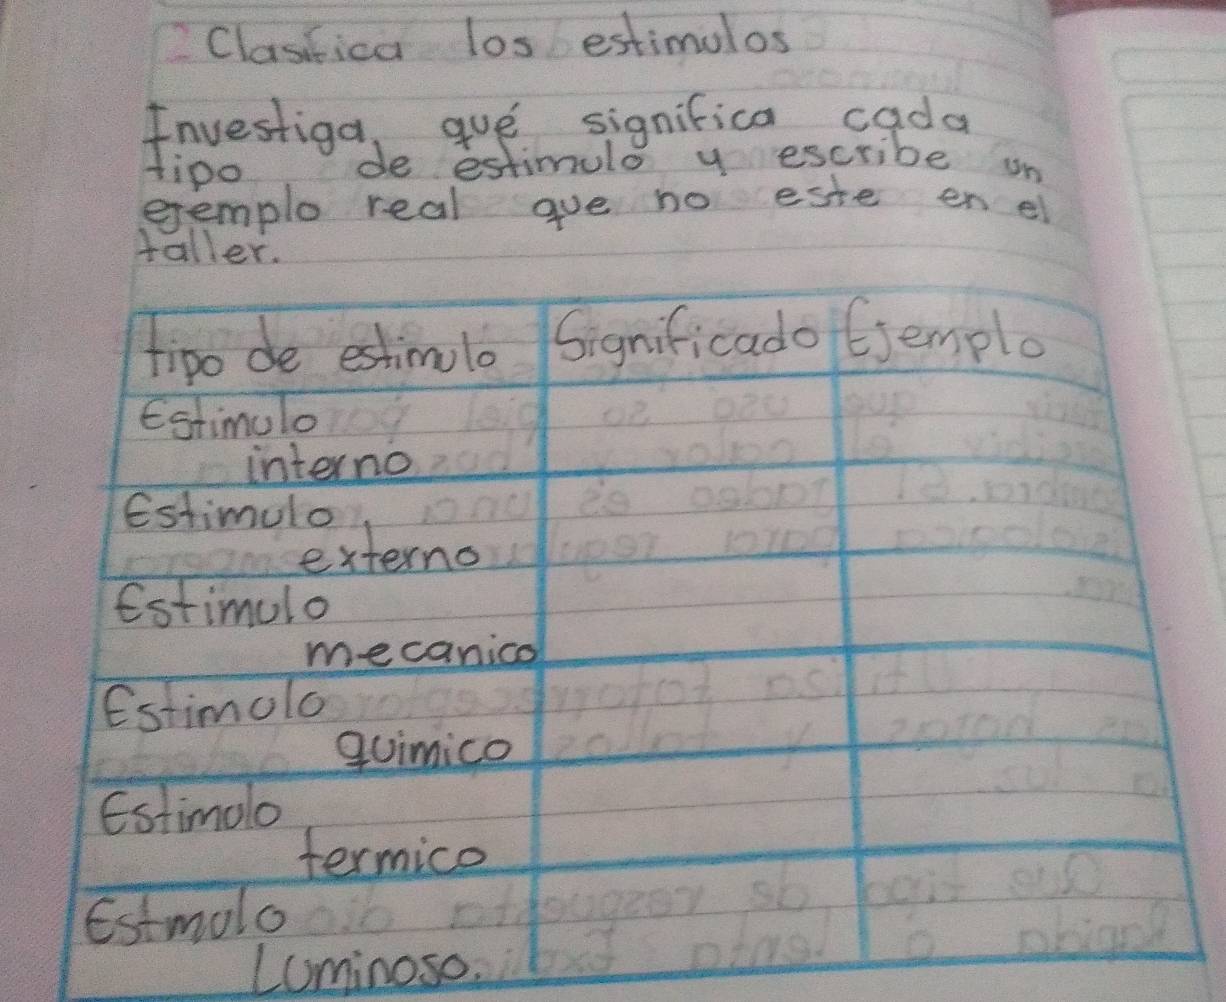 2 Clasifica los estimulos
Investiga, qué significa cada
tipo de estimulo y escribe un
ejemplo real que no este en el
taller.
tipo de estimulo Significado Ejemplo
Estimulo
interno
Estimulo
externo
Estimulo
mecanico
Estimolo
quimico
Estimolo
termico
Estmulo
Luminoso.